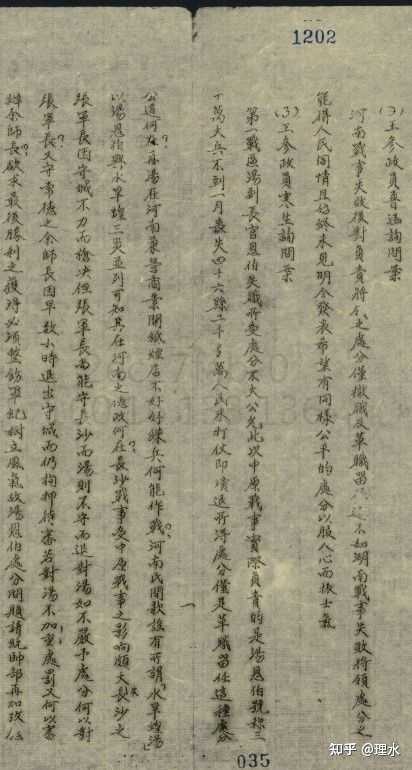 1202
(2)王參政員普涵詢問案
河南戰事失敗後對負責將之處分僅撤職及革職留不如湖南戰事失敗將領處分之
能得人民同情且始終未見明令發表希望有同樣公平的處分以服人心而振士氣
(3)王參政員寒生詢問案
第一戰區湯副長官恩伯失職所受處分不太公允此次中原戰事實際負責的是湯恩伯號稱三
十萬大兵不到一月喪失四十六縣二千多萬人民未打仗即潰退所得處分僅是革職留任這種處分
公道何在?再湯在河南東營商業開煙店不好好練兵何能作戰?河南民間歌謠有所謂「水旱蝗湯」
以湯恩伯與水旱蝗三災並列可知其在河南之德政何在?長沙戰事受中原戰事之影响頗大長沙之
張軍長因守城不力而槍決但張軍長尚能守長沙而湯則不守而退對湯如不嚴予處分何以對
張軍長?又守常德之余師長因早數小時退出守城而仍拘押待審若對湯不加重處罰又何以審
辦余師長?欲求最後勝利之獲得必須整飭軍紀樹立風氣故湯恩伯處分問題請統帥部再加
一
035
知乎 @理水